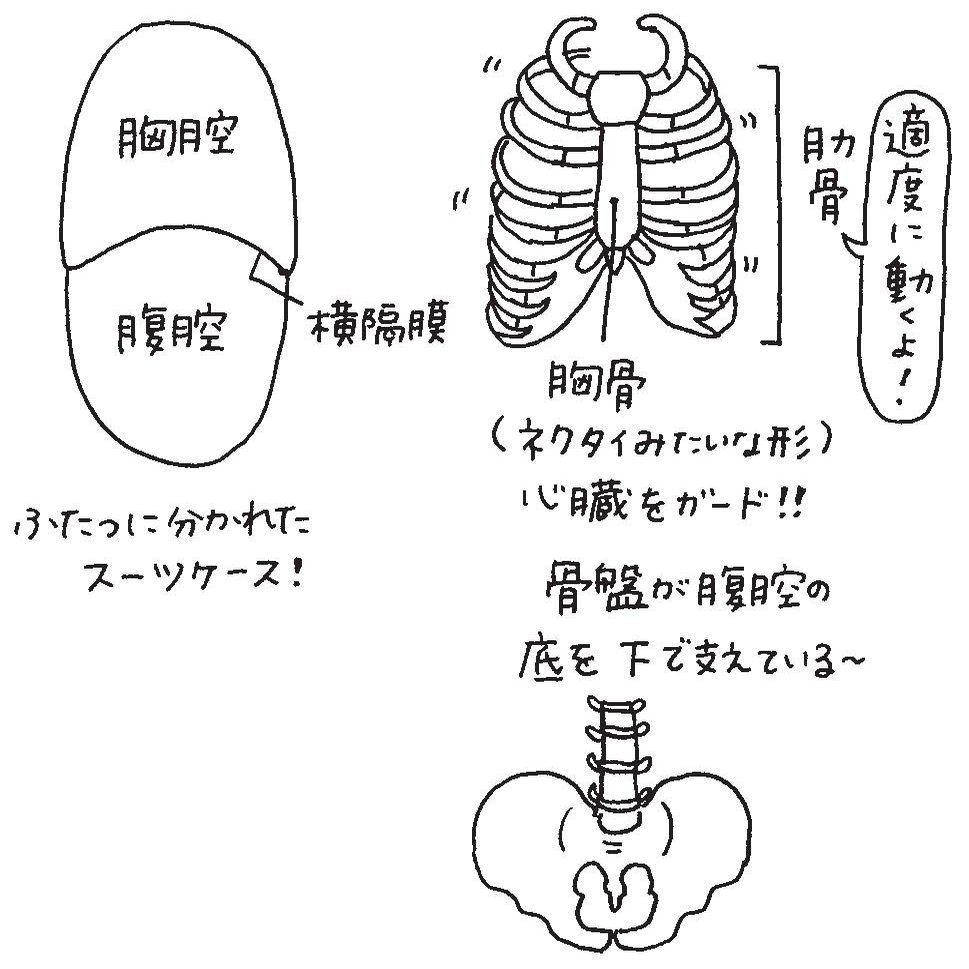 胸腔
腹腔
横隔膜
ふたつに分かれた
スーツケース!
肋骨
適度に動くよ!
胸骨
(ネクタイみたいな形)
心臓をガード!!
骨盤が腹腔の
底を下で支えている〜